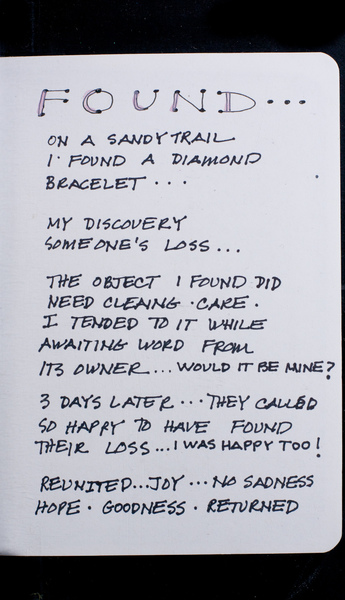 FOUND...
ON A SANDY TRAIL
I FOUND A DIAMOND
BRACELET...
MY DISCOVERY
SOMEONE'S LOSS...
THE OBJECT I FOUND DID
NEED CLEANING · CARE.
I TENDED TO IT WHILE
AWAITING WORD FROM
ITS OWNER... WOULD IT BE MINE?
3 DAYS LATER... THEY CALLED
SO HAPPY TO HAVE FOUND
THEIR LOSS... I WAS HAPPY TOO!
REUNITED... JOY... NO SADNESS
HOPE · GOODNESS · RETURNED